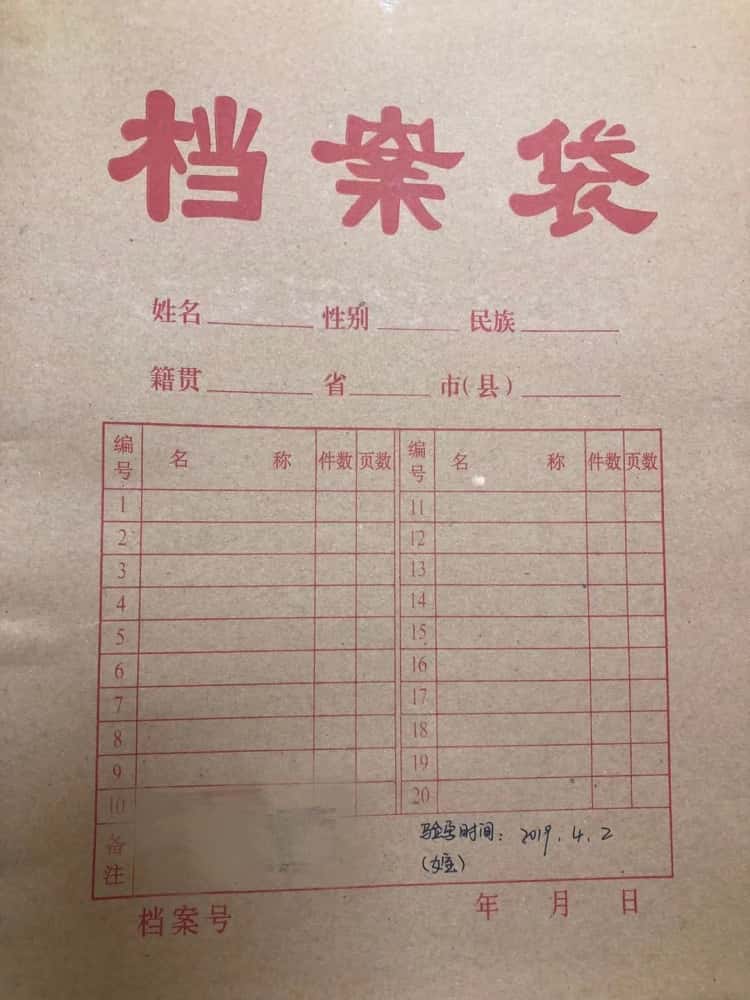 档案袋
姓名 性别 民族
籍贯 省 市(县)
编号 名称 件数 页数 编号 名称 件数 页数
1 11
2 12
3 13
4 14
5 15
6 16
7 17
8 18
9 19
10 20
备注 时间: 2019.4.2
(女宝)
档案号 年 月 日